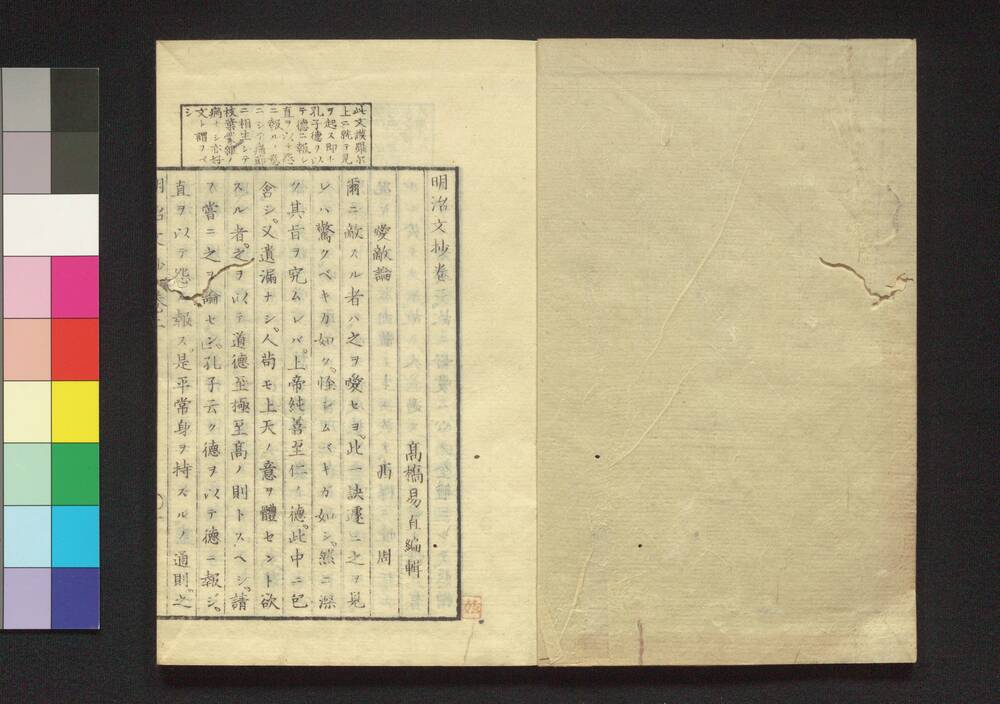 明治文抄卷之
髙橋易直編輯
愛敵論 西周
爾ニ敵スル者ハ之ヲ愛セヨ。此一訣遽ニ之ヲ見
レハ驚クベキガ如ク。怪シムベキガ如シ。然ニ深
ク其旨ヲ究ムレバ。上帝純善至仁ノ德。此中ニ包
含シ。又遺漏ナシ。人苟モ上天ノ意ヲ體セント欲
スル者。之ヲ以テ道德至極至髙ノ則トスヘシ。請
フ嘗ニ之ヲ論セン。孔子云ク德ヲ以テ德ニ報ジ。
直ヲ以テ怨ニ報ス。是平常身ヲ持スルノ通則。之
明治文抄卷之
此文漢羅尓
上ニ就テ見
ヲ起ス即ト
孔子德ヲ以
テ德ニ報シ
直ヲ以テ怨
ニ報ルノ
ニシテ
ニ相生シテ
枝葉ノ
病ナシ亦好
文ト謂フベ
シ